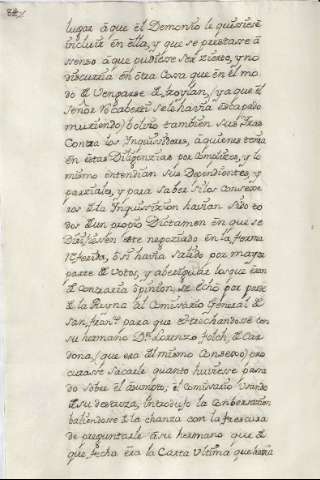 lugar á que el Demonio le quisiese
incluir en ella, y que se prestasse a
ssenso á que pudiesse ser zierto, y no
discurria en otra Cosa que en el mo
do de Vengarse de Froylan, (ya que el
Señor Rocaberti se le havia escapado
muriendo) bolvio tambien sus Iras
Contra los Inquisidores, á quienes tenia
en estas Diligenzias por Complices, y lo
mismo entendian sus Dependientes, y
parziales, y para Saber si los Conseje
ros de la Inquisizion havian sido to
dos de un propio Dictamen en que se
Dirijiesen este negoziado en la forma
referida, ó si havia salido por mayor
parte de Votos, y aberiguar los que eran
de contraria opinion, se echó por parte
de la Reyna al Comisario General de
San Franco para que estrechandosse con
su hermano Dn Lorenzo Folch, de Car
dona, (que era del mismo Consexo) pro
curasse sacarle quanto huviesse pasa
do sobre el asumpto, el Comissario Usando
de su destreza, introdujo la Conbersazion
baliendosse de la chanza con la frescura
de preguntarle á su hermano que de
que fecha era la Carta Ultima que havia